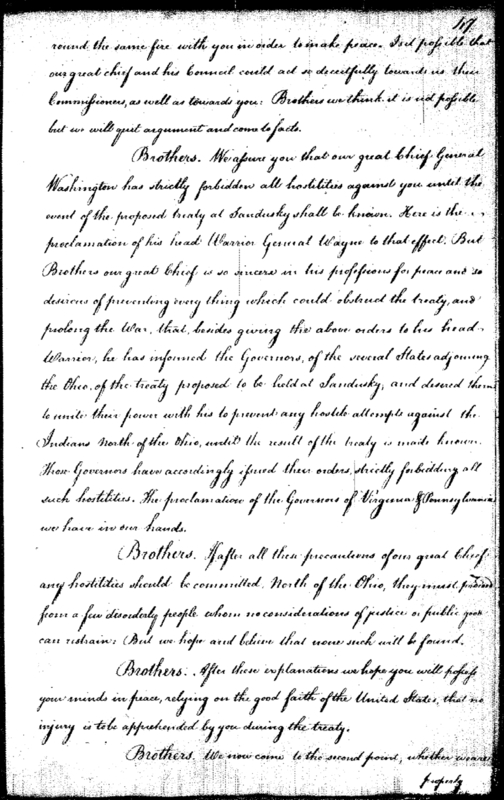 17
round the same fire with you in order to make peace. Is it possible that
our great chief and his Council could act so deceitfully towards us their
Commissioners, as well as towards you: Brothers we think it is not possible
but we will quit argument and come to facts.
Brothers. We assure you that our great Chief General
Washington has strictly forbidden all hostilities against you until the
event of the proposed treaty at Sandusky shall be known. Here is the
proclamation of his head Warrior General Wayne to that effect. But
Brothers our great Chief is so sincere in his professions for peace and so
desirous of preventing every thing which could obstruct the treaty, and
prolong the War, that, besides giving the above orders to his head
Warrior, he has informed the Governors, of the several States adjoining
the Ohio, of the treaty proposed to be held at Sandusky, and desired them
to unite their power with his to prevent any hostile attempts against the
Indians North of the Ohio, until the result of the treaty is made known.
Those Governors have accordingly issued their orders, strictly forbidding all
such hostilities. The proclamation of the Governors of Virginia & Pennsylvania
we have in our hands.
Brothers. If after all these precautions of our great Chief
any hostilities should be committed, North of the Ohio, they must proceed
from a few disorderly people whom no considerations of justice or public good
can restrain: But we hope and believe that none such will be found.
Brothers. After these explanations we hope you will possess
your minds in peace, relying on the good faith of the United States, that no
injury is to be apprehended by you during the treaty.
Brothers. We now come to the second point, whether we are
property